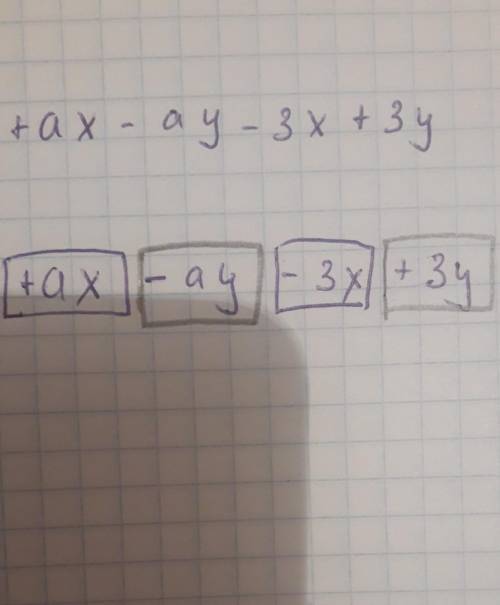 +ax - ay - 3x + 3y
+ax - ay - 3x + 3y